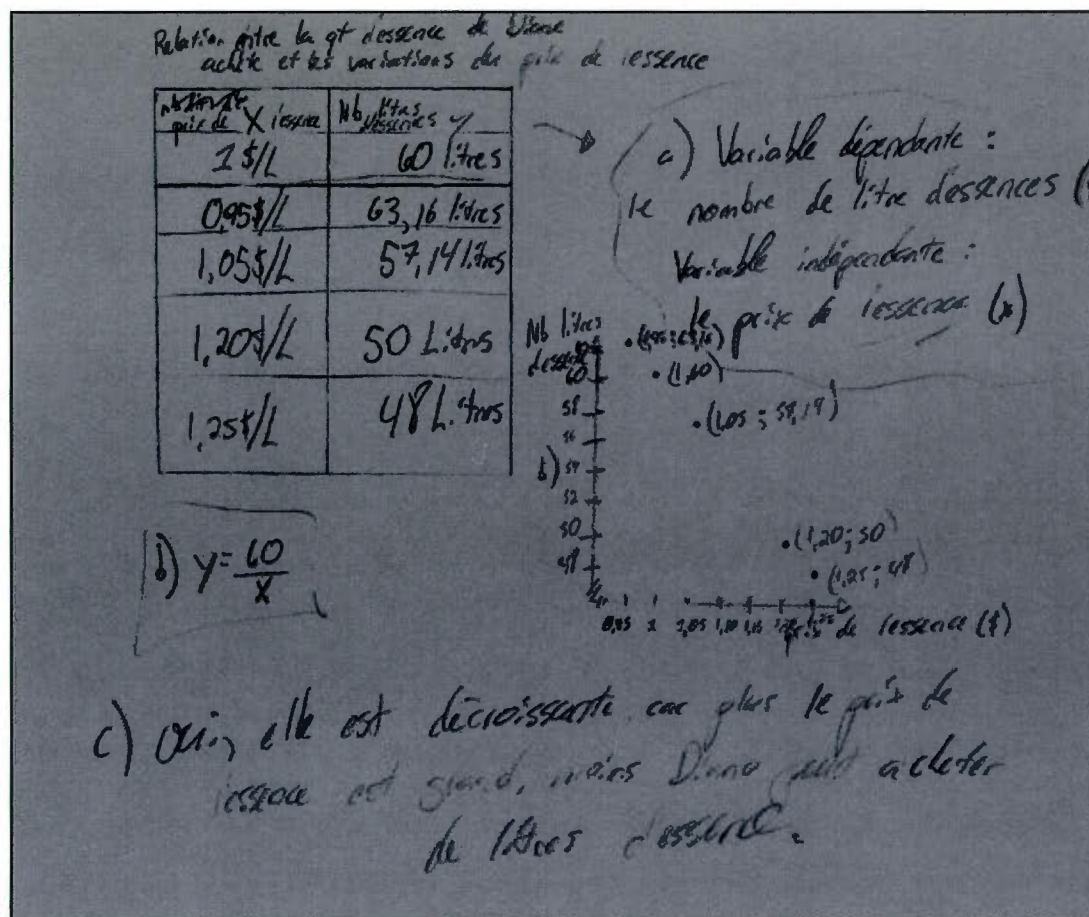 Relation entre la qt d'essence de Diane
achète et les variations du prix de l'essence
prix de X l'essence
Nb litres d'essences y
1$/L
60 litres
0,95$/L
63,16 litres
1,05$/L
57,14 litres
1,20$/L
50 Litres
1,25$/L
48 Litres
a) Variable dépendante :
le nombre de litre d'essences
Variable indépendante :
le prix de l'essence (x)
Nb litres
d'essence
60
58
56
54
52
50
48
b)
(1,60)
(1,05 ;
(1,20; 50)
(1,25; 48)
0,95 1 1,05 1,10 1,15 1,20 1,25
prix de l'essence ($)
b) y = 60
x
c) oui, elle est décroissante car plus le prix de
l'essence est grand, moins Diane peut acheter
de litres d'essence.